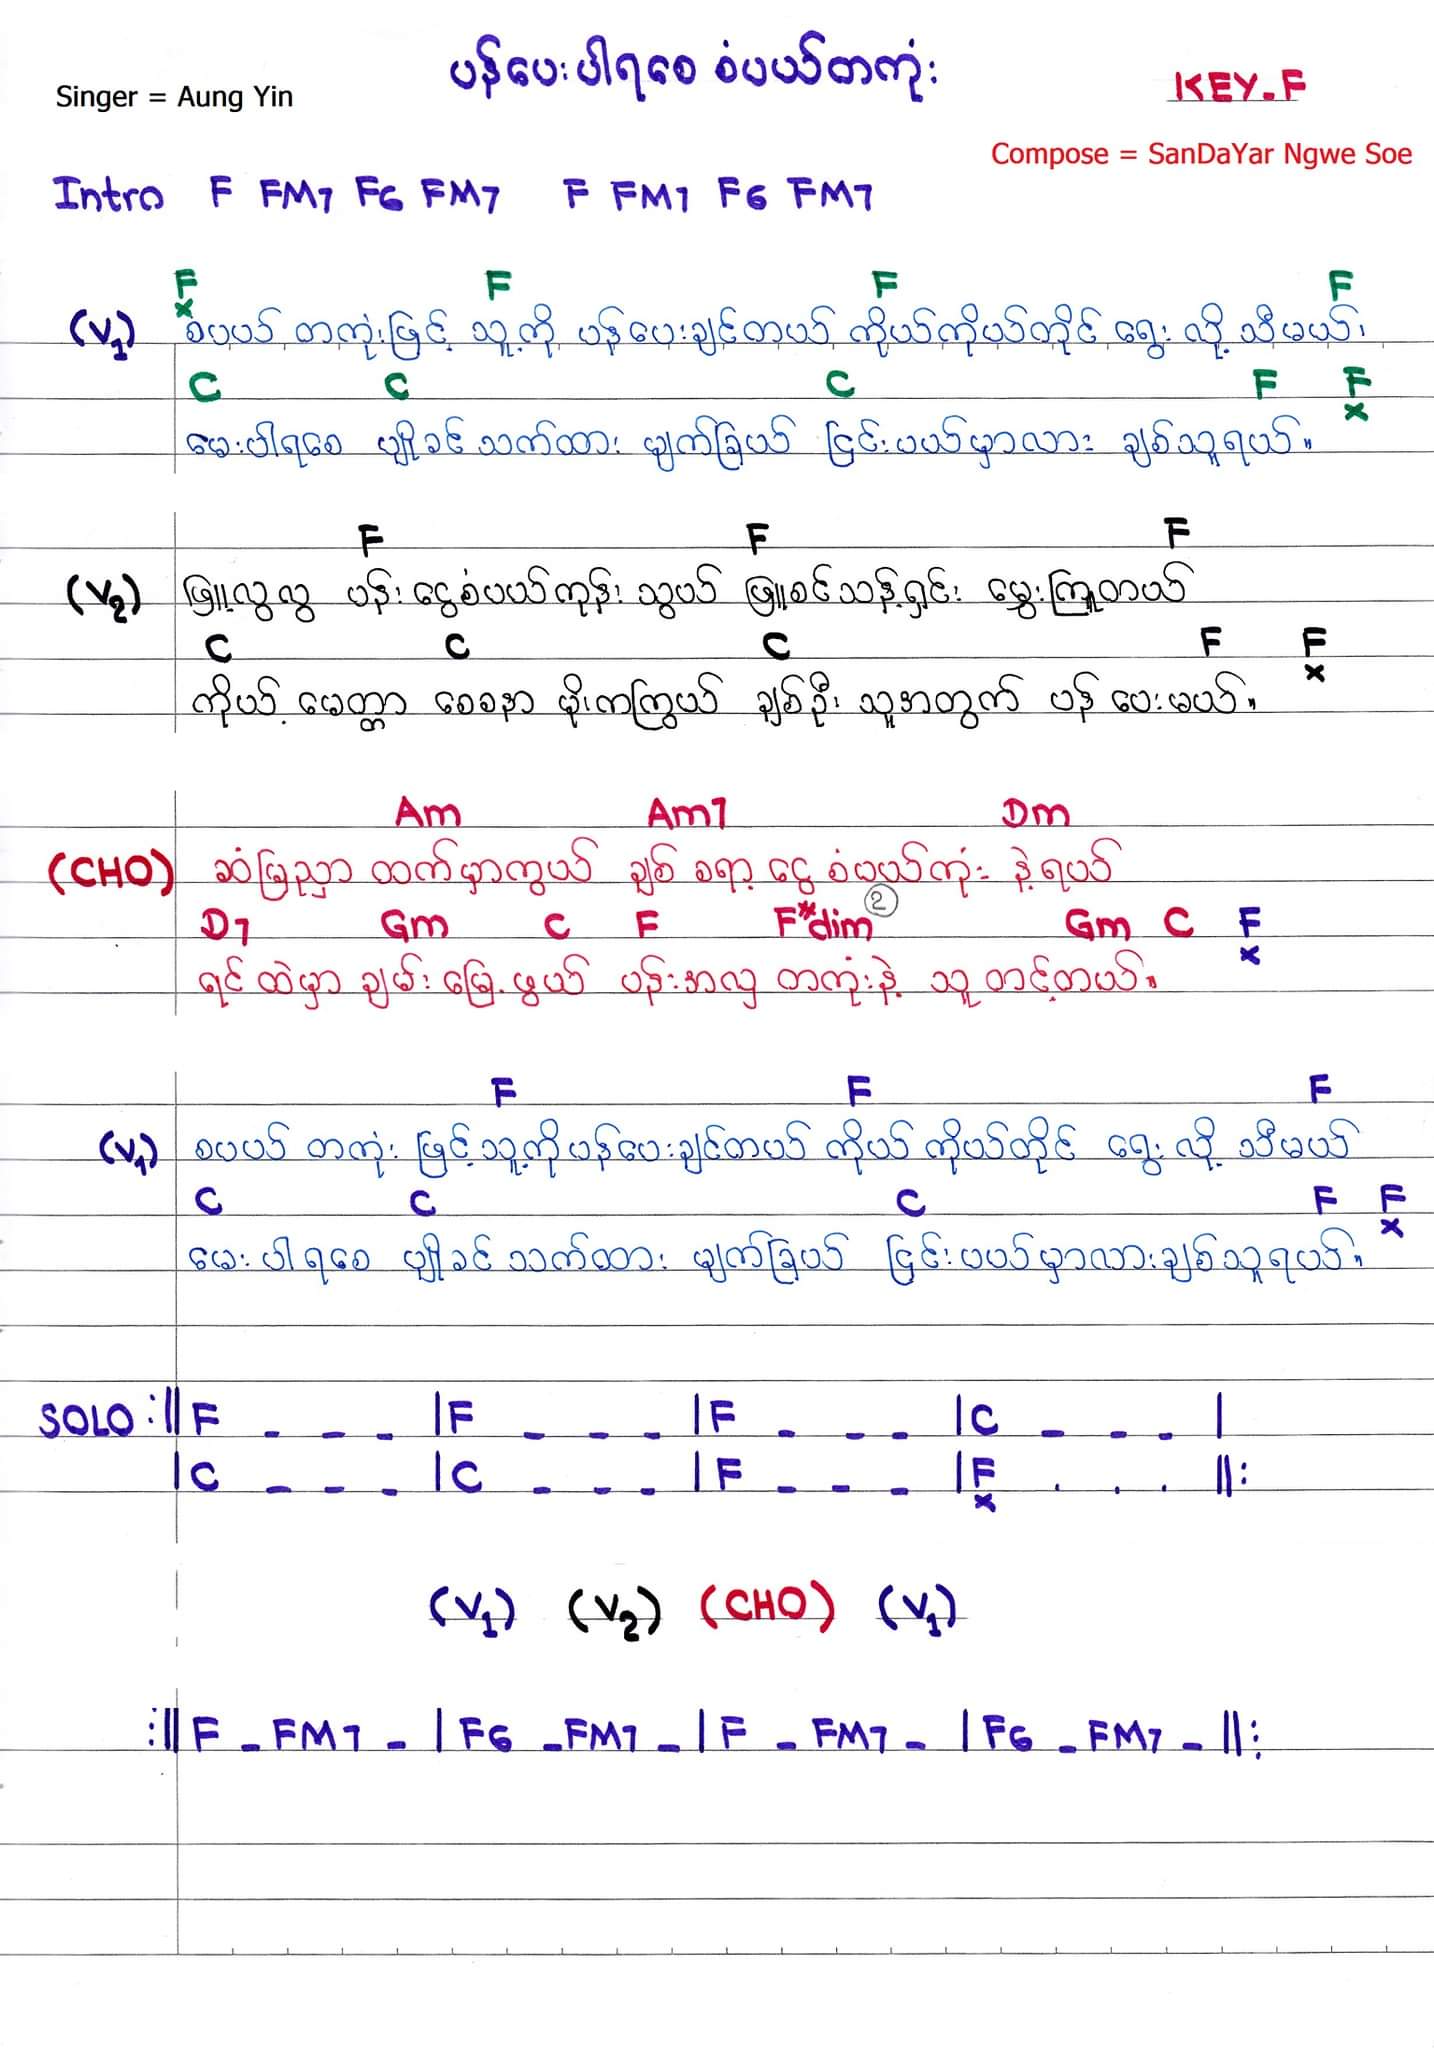 ပန်ပေးပါရစေ စံပယ်တကုံး
Singer = Aung Yin
KEY-F
Compose = SanDaYar Ngwe Soe
Intro F FM7 F6 FM7 F FM7 F6 FM7
F F F F
x
(V1) စပယ် တကုံးဖြင့် သူ့ကို ပန်ပေးချင်တယ် ကိုယ်ကိုယ်တိုင် ရွေး လို့ သီမယ်၊
C C C F F
x
မေးပါရစေ ပျိုခင် သက်ထား မျက်ခြယ် ငြင်းပယ်မှာလား ချစ်သူရယ်။
F F F
(V2) ဖြူလွလွ ပန်း ငွေစံပယ်ကုန်း သွယ် ဖြူစင်သန့်ရှင်း မွှေးကြူတယ်
C C C F F
x
ကိုယ့် မေတ္တာ စေစနာ ဖိုးကကြွယ် ချစ်ဦး သူ့အတွက် ပန် ပေးမယ်။
Am Am7 Dm
(CHO) ဆံမြညှာ ထက်မှာကွယ် ချစ် စရာ့ ငွေ စံပယ်ကုံး နဲ့ရယ်
D7 Gm C F F#dim ② Gm C F
x
ရင် ထဲမှာ ချမ်း မြေ့ဖွယ် ပန်းအလှ တကုံးနဲ့ သူ တင့်တယ်။
F F F
(V1) စပယ် တကုံး ဖြင့်သူ့ကိုပန်ပေးချင်တယ် ကိုယ် ကိုယ်တိုင် ရွေး လို့ သီမယ်
C C C F F
x
မေး ပါ ရစေ ပျိုခင် သက်ထား မျက်ခြယ် ငြင်းပယ်မှာလားချစ်သူရယ်။
SOLO :||F _ _ _ |F _ _ _ |F _ _ _ |C _ _ _ |
|C _ _ _ |C _ _ _ |F _ _ _ |F . . . ||:
x
(V1) (V2) (CHO) (V1)
:||F _ FM7 _ | F6 _ FM7 _ | F _ FM7 _ | F6 _ FM7 _ ||: